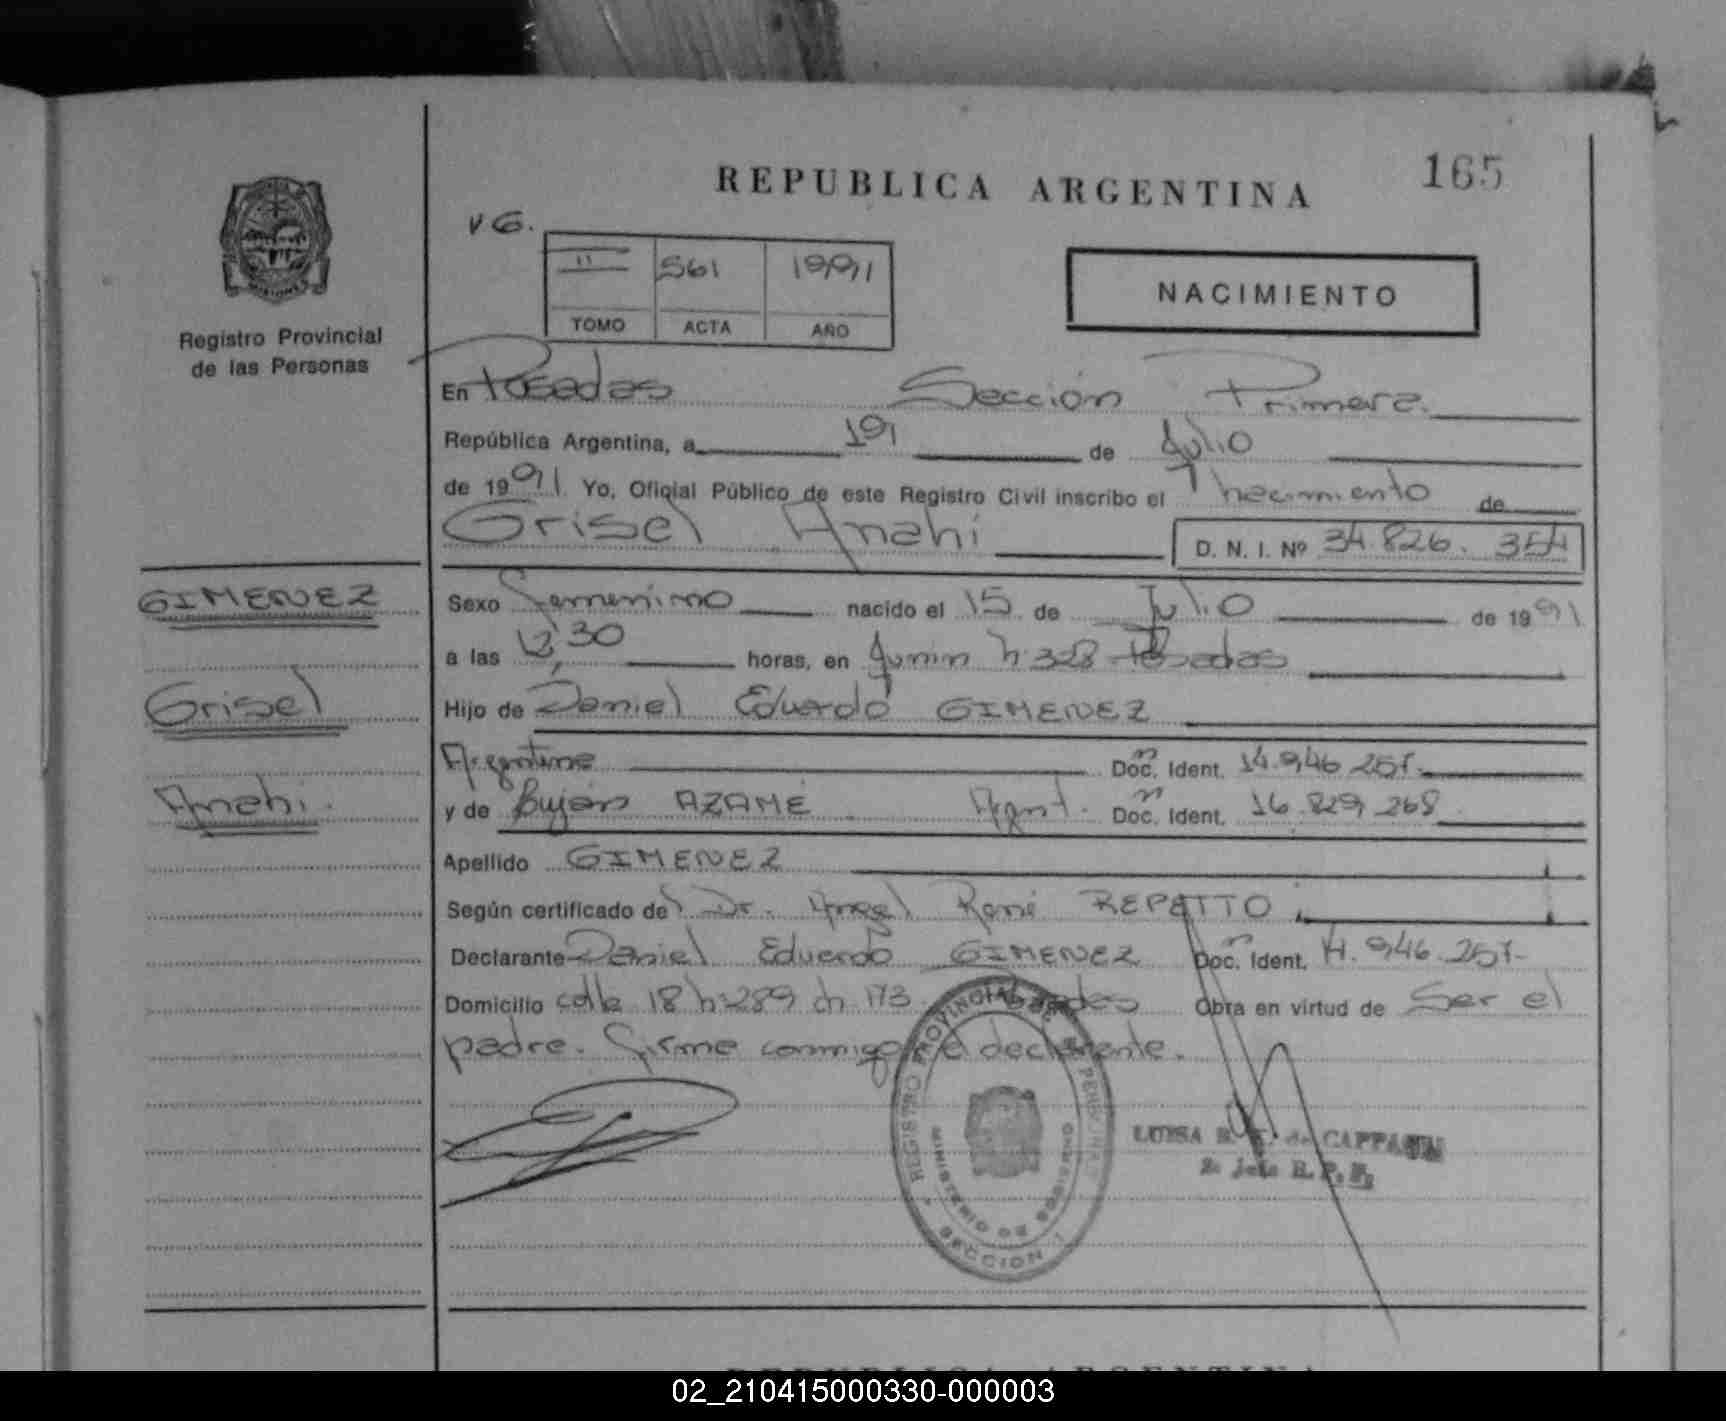 REPUBLICA ARGENTINA
165
V G.
II 561 1991
TOMO ACTA AÑO
NACIMIENTO
MISIONES
Registro Provincial
de las Personas
En Posadas Sección Primera
República Argentina, a 19 de Julio
de 1991. Yo, Oficial Público de este Registro Civil inscribo el nacimiento de
Grisel Anahi D. N. I. Nº 34.826.354
GIMENEZ
Grisel
Anahi.
Sexo femenino nacido el 15 de Julio de 1991
a las 12,30 horas, en Junin n: 328 Posadas
Hijo de Daniel Eduardo GIMENEZ
Argentino Doc. Ident. 14.946.257.
y de AZAME Argent. Doc. Ident. 16.829.268
Apellido GIMENEZ
Según certificado del Dr. Angel René REPETTO
Declarante Daniel Eduardo GIMENEZ Doc. Ident. 14.946.257-
Domicilio calle 18 n:289 ch 173. Posadas Obra en virtud de Ser el
padre. firma conmigo el declarante.
REGISTRO PROVINCIAL DE LAS PERSONAS
MINISTERIO DE GOBIERNO
SECCION 1
LUISA de
2º jefe R. P. P.
REPUBLICA ARGENTINA
02_210415000330-000003